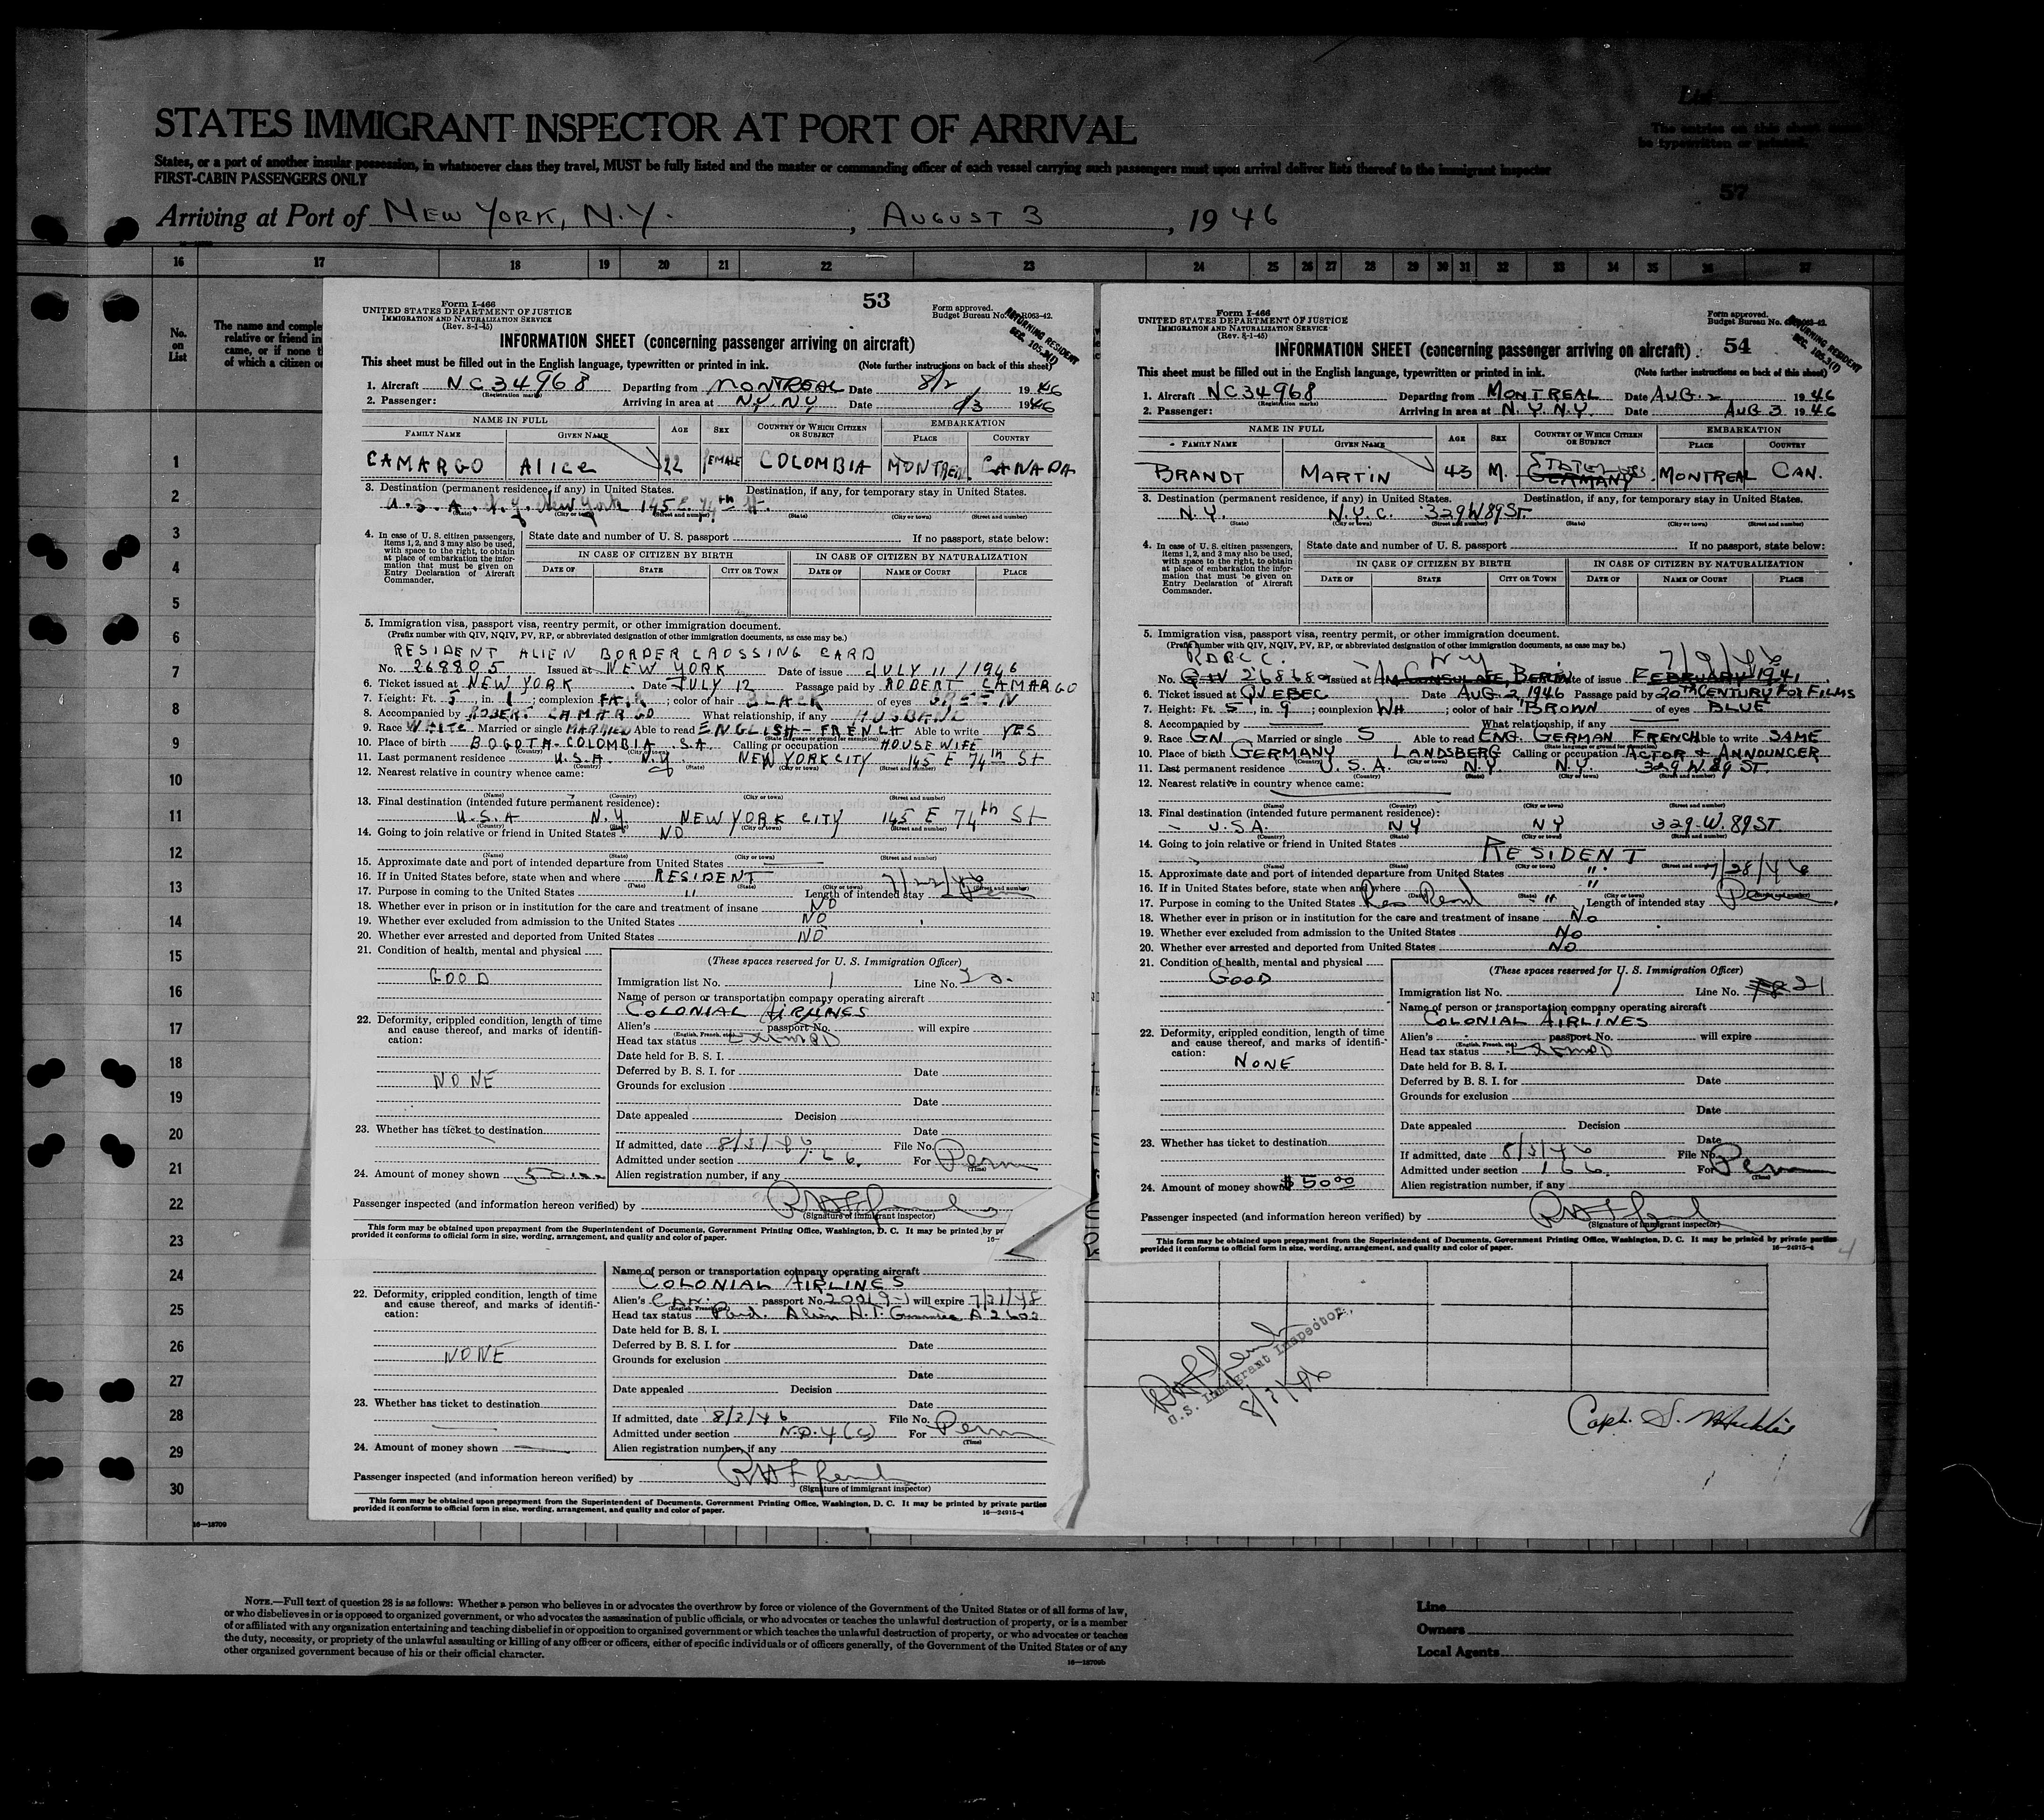 STATES IMMIGRANT INSPECTOR AT PORT OF ARRIVAL
States, or a port of another insular possession, in whatsoever class they travel, MUST be fully listed and the master or commanding officer of each vessel carrying such passengers must upon arrival deliver lists thereof to the immigrant inspector
FIRST-CABIN PASSENGERS ONLY
List
The entries on this sheet must
be typewritten or printed.
57
Arriving at Port of NEW YORK, N.Y., AUGUST 3, 1946
16 17 18 19 20 21 22 23 24 25 26 27 28 29 30 31 32 33 34 35 36 37
No. on List
The name and comple
relative or friend in
came, or if none t
of which a citizen or
1
2
3
4
5
6
7
8
9
10
11
12
13
14
15
16
17
18
19
20
21
22
23
24
25
26
27
28
29
30
16—18709
53
Form I-466
UNITED STATES DEPARTMENT OF JUSTICE
IMMIGRATION AND NATURALIZATION SERVICE
(Rev. 8-1-45)
Form approved.
Budget Bureau No. R063-42.
RETURNING RESIDENT
SEC. 105.3(f)
INFORMATION SHEET (concerning passenger arriving on aircraft)
This sheet must be filled out in the English language, typewritten or printed in ink. (Note further instructions on back of this sheet)
1. Aircraft NC34968 Departing from MONTREAL Date 8/2 1946
(Registration marks)
2. Passenger: Arriving in area at N.Y. N.Y. Date 8/3 1946
NAME IN FULL AGE SEX COUNTRY OF WHICH CITIZEN OR SUBJECT EMBARKATION
FAMILY NAME GIVEN NAME PLACE COUNTRY
CAMARGO Alice 22 FEMALE COLOMBIA MONTREAL CANADA
3. Destination (permanent residence, if any) in United States. Destination, if any, for temporary stay in United States.
U.S.A. N.Y. New York 145 E. 74th St.
(State) (City or town) (Street and number) (State) (City or town) (Street and number)
4. In case of U. S. citizen passengers, items 1, 2, and 3 may also be used, with space to the right, to obtain at place of embarkation the information that must be given on Entry Declaration of Aircraft Commander.
State date and number of U. S. passport If no passport, state below:
IN CASE OF CITIZEN BY BIRTH IN CASE OF CITIZEN BY NATURALIZATION
DATE OF STATE CITY OR TOWN DATE OF NAME OF COURT PLACE
5. Immigration visa, passport visa, reentry permit, or other immigration document.
(Prefix number with QIV, NQIV, PV, RP, or abbreviated designation of other immigration documents, as case may be.)
RESIDENT ALIEN BORDER CROSSING CARD
No. 268805 Issued at NEW YORK Date of issue JULY 11/1946
6. Ticket issued at NEW YORK Date JULY 12 Passage paid by ROBERT CAMARGO
7. Height: Ft. 5 in. 1; complexion FAIR; color of hair BLACK of eyes GREEN
8. Accompanied by ROBERT CAMARGO What relationship, if any HUSBAND
9. Race White Married or single MARRIED Able to read ENGLISH - FRENCH Able to write YES
(State language or ground for exemption)
10. Place of birth BOGOTA - COLOMBIA S.A. Calling or occupation HOUSE WIFE
(Country) (City or town)
11. Last permanent residence U.S.A. N.Y. NEW YORK CITY 145 E 74th St
(Country) (State) (City or town) (Street and number)
12. Nearest relative in country whence came:
(Name) (Country) (City or town) (Street and number)
13. Final destination (intended future permanent residence):
U.S.A N.Y NEW YORK CITY 145 E 74th St
(Country) (State) (City or town) (Street and number)
14. Going to join relative or friend in United States NO
(Name) (State) (City or town) (Street and number)
15. Approximate date and port of intended departure from United States
16. If in United States before, state when and where RESIDENT 7/22/46
(Date) (State) (City or town) (Street and number)
17. Purpose in coming to the United States " Length of intended stay Perm
18. Whether ever in prison or in institution for the care and treatment of insane NO
19. Whether ever excluded from admission to the United States NO
20. Whether ever arrested and deported from United States NO
21. Condition of health, mental and physical
GOOD
22. Deformity, crippled condition, length of time and cause thereof, and marks of identification:
NONE
23. Whether has ticket to destination
24. Amount of money shown
(These spaces reserved for U. S. Immigration Officer)
Immigration list No. 1 Line No. 20.
Name of person or transportation company operating aircraft
COLONIAL AIRLINES
Alien's passport No. will expire
(English, French, etc.)
Head tax status Exempt
Date held for B. S. I.
Deferred by B. S. I. for Date
Grounds for exclusion
Date
Date appealed Decision
Date
If admitted, date 8/3/46 File No.
Admitted under section 166. For Perm
(Time)
Alien registration number, if any
Passenger inspected (and information hereon verified) by
(Signature of immigrant inspector)
This form may be obtained upon prepayment from the Superintendent of Documents, Government Printing Office, Washington, D. C. It may be printed by pr
provided it conforms to official form in size, wording, arrangement, and quality and color of paper. 16—
Name of person or transportation company operating aircraft
COLONIAL AIRLINES
22. Deformity, crippled condition, length of time and cause thereof, and marks of identification:
NONE
Alien's Can. passport No. will expire 7/21/48
(English, French, etc.)
Head tax status Pd. Alien H.T. Guarantee A 2602
Date held for B. S. I.
Deferred by B. S. I. for Date
Grounds for exclusion
Date
Date appealed Decision
23. Whether has ticket to destination
Date
If admitted, date 8/3/46 File No.
Admitted under section N.O. 4 (c) For Perm
(Time)
24. Amount of money shown
Alien registration number, if any
Passenger inspected (and information hereon verified) by
(Signature of immigrant inspector)
This form may be obtained upon prepayment from the Superintendent of Documents, Government Printing Office, Washington, D. C. It may be printed by private parties
provided it conforms to official form in size, wording, arrangement, and quality and color of paper. 16—24915-4
Form I-466
UNITED STATES DEPARTMENT OF JUSTICE
IMMIGRATION AND NATURALIZATION SERVICE
(Rev. 8-1-45)
Form approved.
Budget Bureau No. 43-R063-42.
RETURNING RESIDENT
SEC. 105.3(f)
INFORMATION SHEET (concerning passenger arriving on aircraft) 54
This sheet must be filled out in the English language, typewritten or printed in ink. (Note further instructions on back of this sheet)
1. Aircraft NC34968 Departing from MONTREAL Date AUG. 2 1946
(Registration marks)
2. Passenger: Arriving in area at N.Y. N.Y. Date AUG 3 1946
NAME IN FULL AGE SEX COUNTRY OF WHICH CITIZEN OR SUBJECT EMBARKATION
FAMILY NAME GIVEN NAME PLACE COUNTRY
BRANDT MARTIN 43 M. STATELESS GERMANY MONTREAL CAN.
3. Destination (permanent residence, if any) in United States. Destination, if any, for temporary stay in United States.
N.Y. N.Y.C. 329 W 89 ST.
(State) (City or town) (Street and number) (State) (City or town) (Street and number)
4. In case of U. S. citizen passengers, items 1, 2, and 3 may also be used, with space to the right, to obtain at place of embarkation the information that must be given on Entry Declaration of Aircraft Commander.
State date and number of U. S. passport If no passport, state below:
IN CASE OF CITIZEN BY BIRTH IN CASE OF CITIZEN BY NATURALIZATION
DATE OF STATE CITY OR TOWN DATE OF NAME OF COURT PLACE
5. Immigration visa, passport visa, reentry permit, or other immigration document.
(Prefix number with QIV, NQIV, PV, RP, or abbreviated designation of other immigration documents, as case may be.)
RABCC. NY 7/9/46
No. QIV 268680 Issued at AM CONSULATE, BERLIN Date of issue FEBRUARY 1941
6. Ticket issued at QUEBEC Date AUG 2 1946 Passage paid by 20TH CENTURY FOX FILMS
7. Height: Ft. 5, in. 9; complexion WH; color of hair BROWN of eyes BLUE
8. Accompanied by What relationship, if any
9. Race GN Married or single S Able to read ENG. GERMAN FRENCH Able to write SAME
(State language or ground for exemption)
10. Place of birth GERMANY LANDSBERG Calling or occupation ACTOR & ANNOUNCER
(Country) (City or town)
11. Last permanent residence U.S.A. N.Y. N.Y. 329 W. 89 ST.
(Country) (State) (City or town) (Street and number)
12. Nearest relative in country whence came:
(Name) (Country) (City or town) (Street and number)
13. Final destination (intended future permanent residence):
U.S.A. NY NY 329 W. 89 ST.
(Country) (State) (City or town) (Street and number)
14. Going to join relative or friend in United States RESIDENT
(Name) (State) (City or town) (Street and number)
15. Approximate date and port of intended departure from United States " 7/28/46
16. If in United States before, state when and where "
(Date) (State) (City or town)
17. Purpose in coming to the United States " Length of intended stay Perm
18. Whether ever in prison or in institution for the care and treatment of insane No
19. Whether ever excluded from admission to the United States No
20. Whether ever arrested and deported from United States No
21. Condition of health, mental and physical
GOOD
22. Deformity, crippled condition, length of time and cause thereof, and marks of identification:
NONE
23. Whether has ticket to destination
24. Amount of money shown $50.00
(These spaces reserved for U. S. Immigration Officer)
Immigration list No. 1 Line No. 21
Name of person or transportation company operating aircraft
COLONIAL AIRLINES
Alien's passport No. will expire
(English, French, etc.)
Head tax status Exempt
Date held for B. S. I.
Deferred by B. S. I. for Date
Grounds for exclusion
Date
Date appealed Decision
Date
If admitted, date 8/3/46 File No.
Admitted under section 166. For Perm
(Time)
Alien registration number, if any
Passenger inspected (and information hereon verified) by
(Signature of immigrant inspector)
This form may be obtained upon prepayment from the Superintendent of Documents, Government Printing Office, Washington, D. C. It may be printed by private parties
provided it conforms to official form in size, wording, arrangement, and quality and color of paper. 16—24915-4
4
U.S. Immigrant Inspector.
8/3/46
Capt. S.
NOTE.—Full text of question 28 is as follows: Whether a person who believes in or advocates the overthrow by force or violence of the Government of the United States or of all forms of law,
or who disbelieves in or is opposed to organized government, or who advocates the assassination of public officials, or who advocates or teaches the unlawful destruction of property, or is a member
of or affiliated with any organization entertaining and teaching disbelief in or opposition to organized government or which teaches the unlawful destruction of property, or who advocates or teaches
the duty, necessity, or propriety of the unlawful assaulting or killing of any officer or officers, either of specific individuals or of officers generally, of the Government of the United States or of any
other organized government because of his or their official character.
16—18709b
Line
Owners
Local Agents